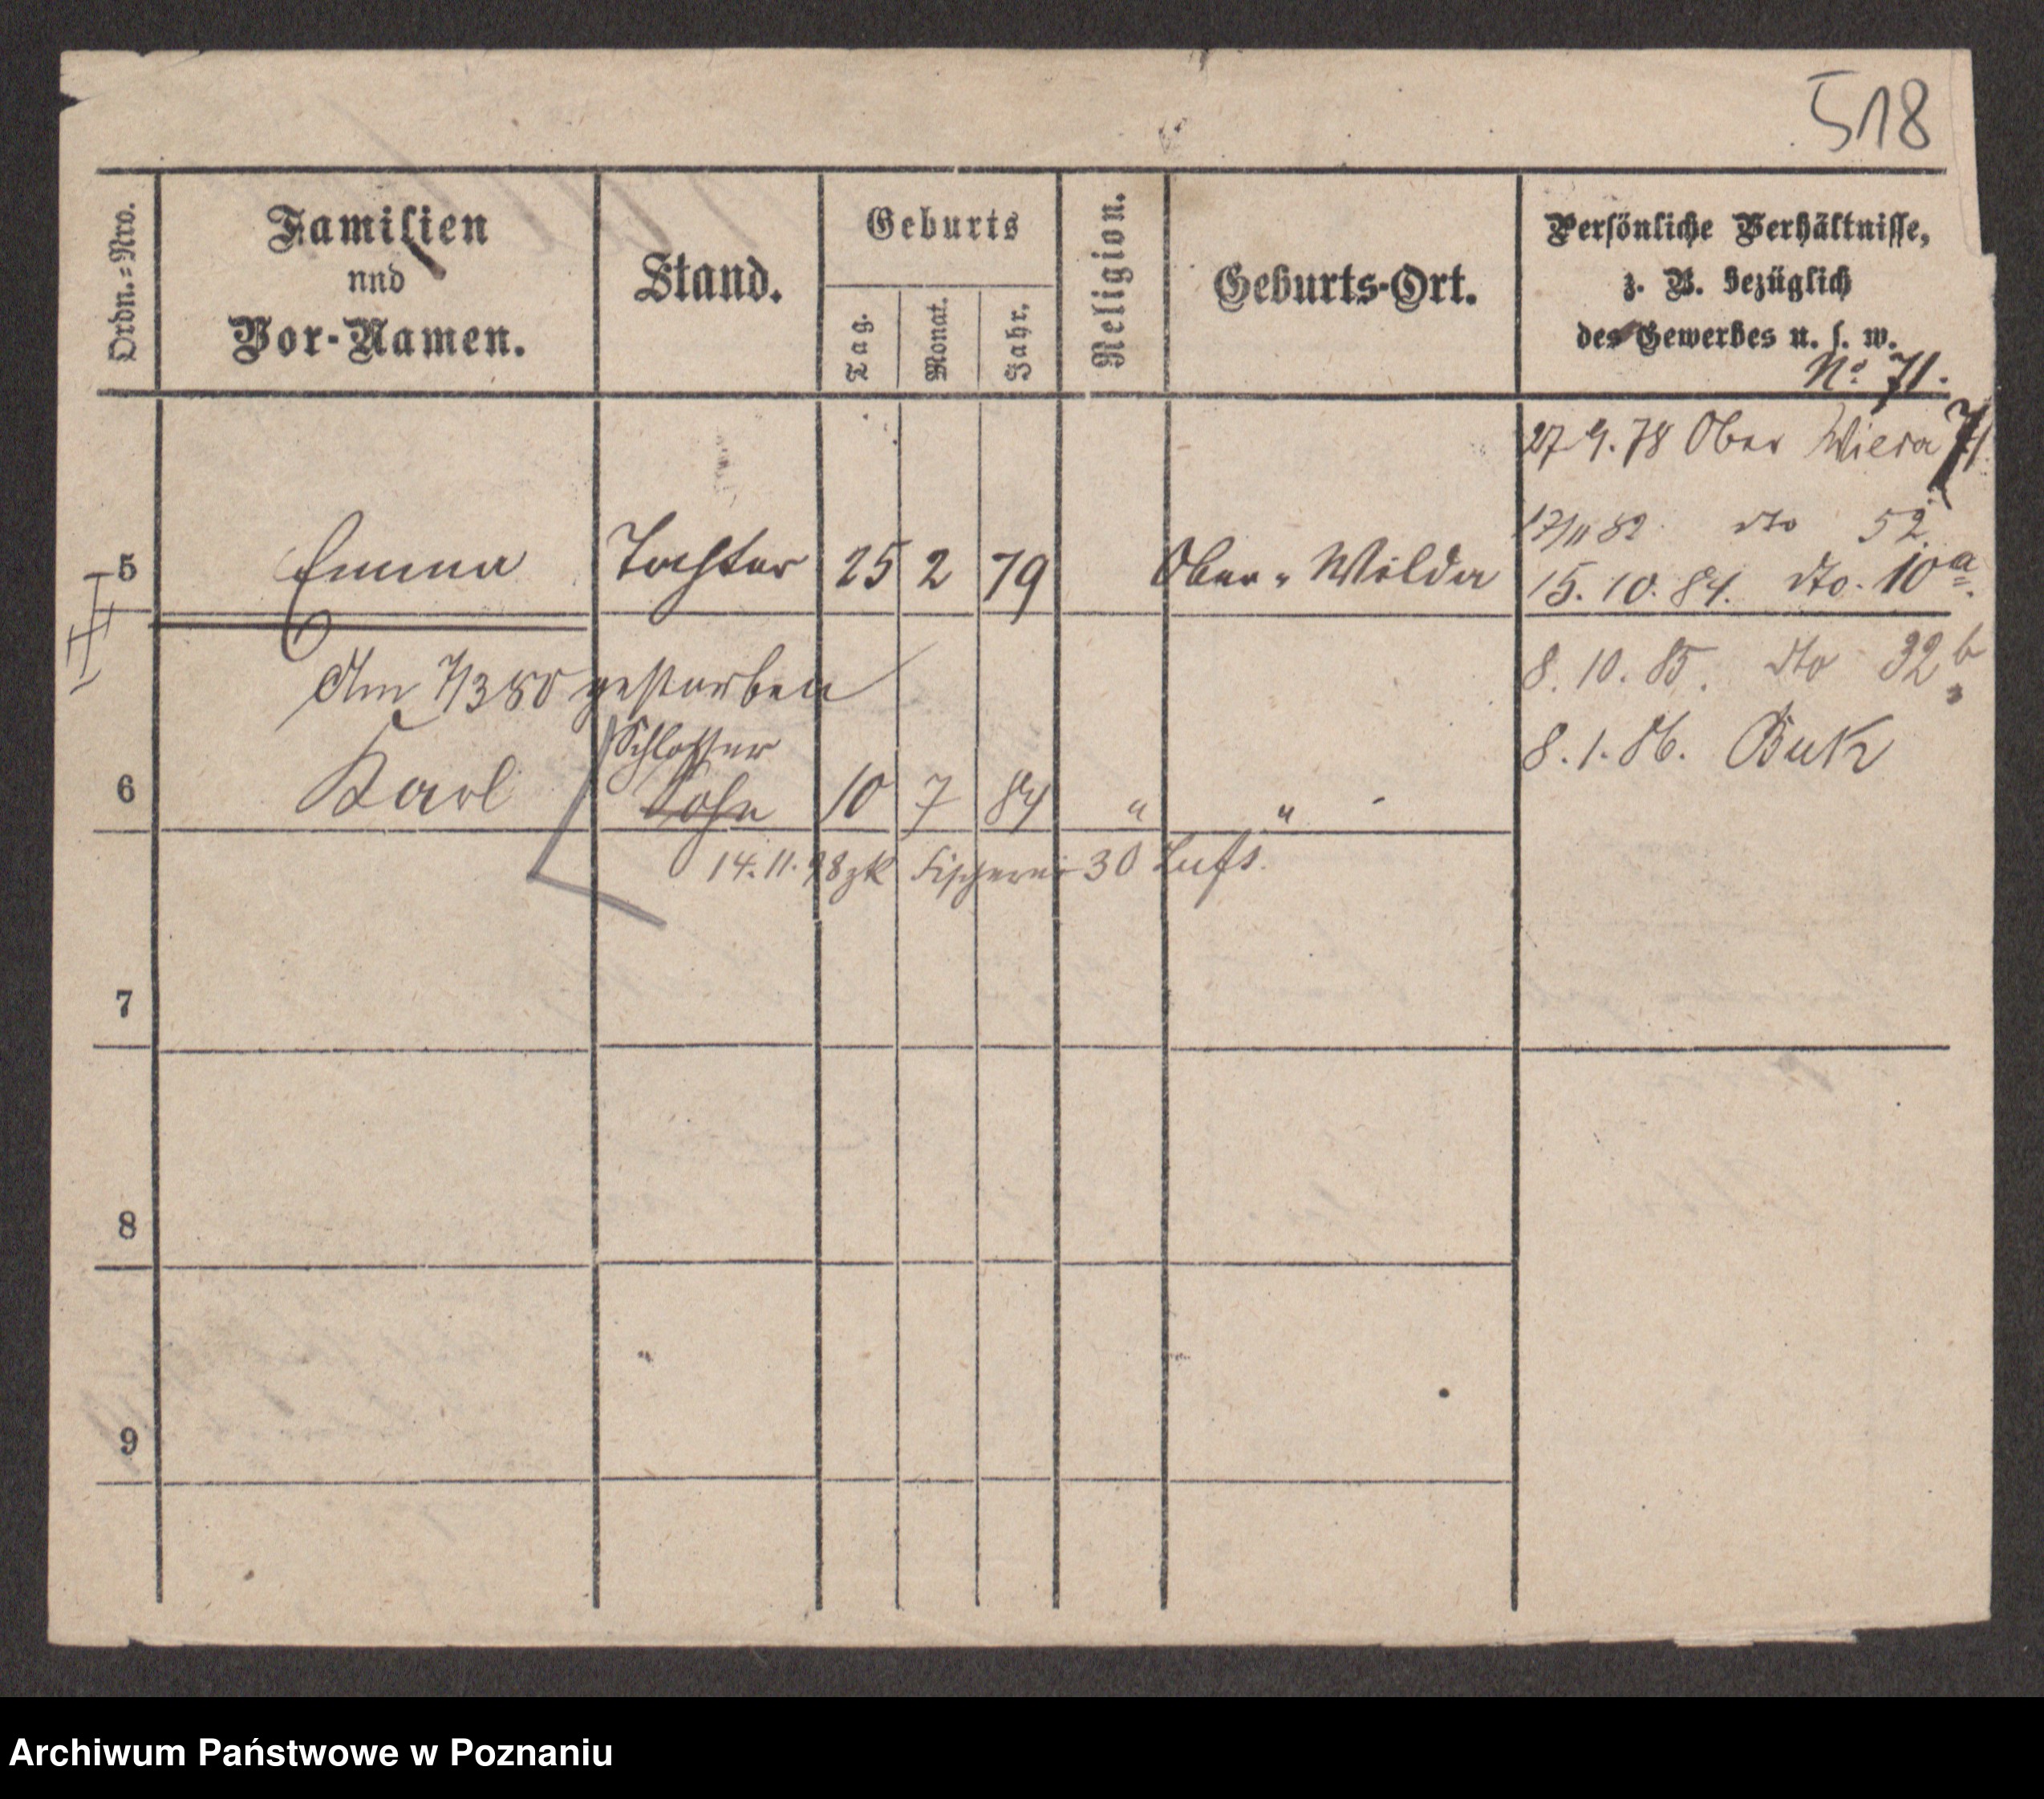 518
Ordn.=Nro.
Familien
und
Vor-Namen.
Stand.
Geburts
Tag.
Monat.
Jahr.
Religion.
Geburts-Ort.
Persönliche Verhältnisse,
z. B. bezüglich
des Gewerbes u. s. w.
No 71.
27.9.78 Ober 71
17/11 82. dto 52.
5 Emma Tochter 25 2 79 Ober-Wilda
15.10.84. dto. 10a.
8.10.85. dto 32b
Am 7/3 80 gestorben
8.1.86. Buk
Schlosser
6 Karl Sohn 10 7 84 " "
14.11.98 zk Fischerei 30
7
8
9
Archiwum Państwowe w Poznaniu